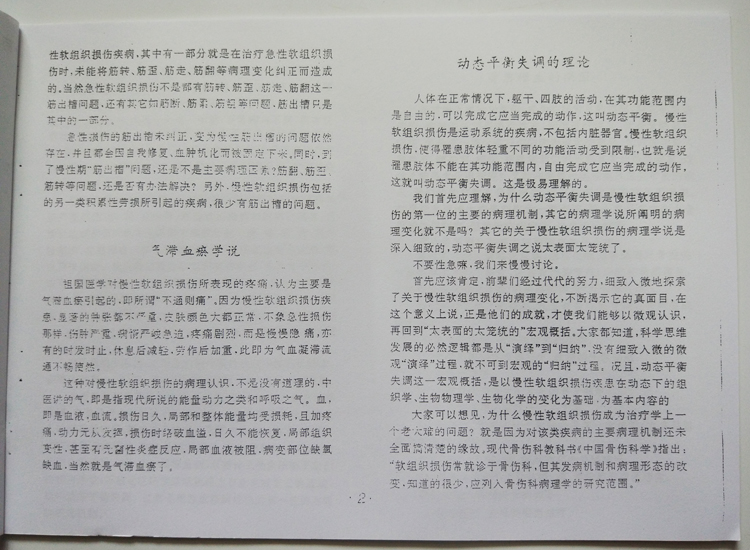 性软组织损伤疾病,其中有一部分就是在治疗急性软组织损
伤时,未能将筋转、筋歪、筋走、筋翻等病理变化纠正而造成
的。当然急性软组织损伤不是都有筋转、筋歪、筋走、筋翻这一
筋出槽问题,还有其它如筋断、筋柔、筋强等问题,筋出槽只是
其中的一部分。
急性损伤的筋出槽未纠正,变为慢性筋出槽的问题依然
存在,并且都会因自我修复、血肿机化而被固定下来。同时,到
了慢性期"筋出槽"问题,还是不是主要病理因素?筋翻、筋歪、
筋转等问题,还是否有办法解决?另外,慢性软组织损伤包括
的另一类积累性劳损所引起的疾病,很少有筋出槽的问题。
气滞血瘀学说
祖国医学对慢性软组织损伤所表现的疼痛,认为主要是
气滞血瘀引起的,即所谓"不通则痛"。因为慢性软组织损伤疾
患,显著的肿胀都不严重,皮肤颜色大都正常,不象急性损伤
那样,伤肿严重,病情严峻急迫,疼痛剧烈,而是慢慢隐痛,亦
有的时发时止,休息后减轻,劳作后加重,此即为气血凝滞流
通不畅使然。
这种对慢性软组织损伤的病理认识,不是没有道理的,中
医讲的气,即是指现代所说的能量动力之类和呼吸之气。血,
即是血液,血流,损伤日久,局部和整体能量均受损耗,且加疼
痛,动力无从发挥,损伤时络破血溢,日久不能恢复,局部组织
变性,甚至有无菌性炎症反应,局部血液被阻,病变部位缺氧
缺血,当然就是气滞血瘀了。
动态平衡失调的理论
人体在正常情况下,躯干、四肢的活动,在其功能范围内
是自由的,可以完成它应当完成的动作,这叫动态平衡。慢性
软组织损伤是运动系统的疾病,不包括内脏器官。慢性软组织
损伤,使得罹患肢体轻重不同的功能活动受到限制,也就是说
罹患肢体不能在其功能范围内,自由完成它应当完成的动作,
这就叫动态平衡失调。这是极易理解的。
我们首先应理解,为什么动态平衡失调是慢性软组织损
伤的第一位的主要的病理机制,其它的病理学说所阐明的病
理变化就不是吗?其它的关于慢性软组织损伤的病理学说是
深入细致的,动态平衡失调之说太表面太笼统了。
不要性急嘛,我们来慢慢讨论。
首先应该肯定,前辈们经过代代的努力,细致入微地探索
了关于慢性软组织损伤的病理变化,不断揭示它的真面目,在
这个意义上说,正是他们的成就,才使我们能够以微观认识,
再回到"太表面的太笼统的"宏观概括。大家都知道,科学思维
发展的必然逻辑都是从"演绎"到"归纳",没有细致入微的微
观"演绎"过程,就不可到宏观的"归纳"过程。况且,动态平衡
失调这一宏观概括,是以慢性软组织损伤疾患在动态下的组
织学、生物物理学、生物化学的变化为基础,为基本内容的
大家可以想见,为什么慢性软组织损伤成为治疗学上一
个老大难的问题?就是因为对该类疾病的主要病理机制还未
全面搞清楚的缘故。现代骨伤科教科书《中国骨伤科学》指出:
"软组织损伤常就诊于骨伤科,但其发病机制和病理形态的改
变,知道的很少,应列入骨伤科病理学的研究范围。"
·2·